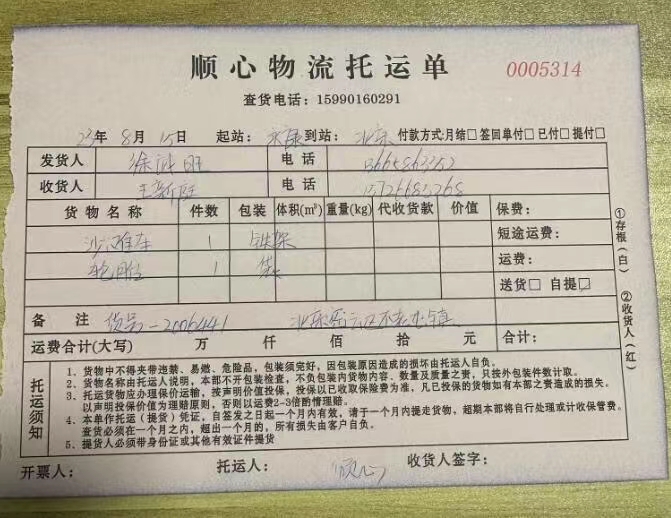 顺心物流托运单
0005314
查货电话：15990160291
23年8月15日 起站：永康 到站：北京 付款方式：月结□签回单付□已付□提付□
发货人 徐 旺 电话
收货人 王新旺 电话
货物名称 件数 包装 体积(m³) 重量(kg) 代收货款 价值 保费：
沙滩车 1 铁架 短途运费：
轮胎 1 袋 运费：
送货□ 自提□
备注 货号-2006441 北京密云区不老屯镇
运费合计(大写) 万 仟 佰 拾 元 合计：
托运须知
1、货物中不得夹带违禁、易燃、危险品，包装须完好，因包装原因造成的损坏由托运人自负。
2、货物名称由托运人说明，本部不开包装检查，不负包装内货物内容、数量及质量之责，只按外包装件数计取。
3、托运货物应办理保价运输，按声明价值投保，投保以已收取保险费为准，凡已投保的货物如有本部之责造成的损失，
以声明投保价值为理赔原则，否则以运费2-3倍酌情理赔。
4、本单作托运（提货）凭证，自签发之日起一个月内有效，请于一个月内提走货物，超期本部将自行处理或计收保管费。
查货必须在一个月之内，超出一个月的，所有损失由客户自负。
5、提货人必须带身份证或其他有效证件提货
①存根（白） ②收货人（红）
开票人： 托运人： 顺心 收货人签字：